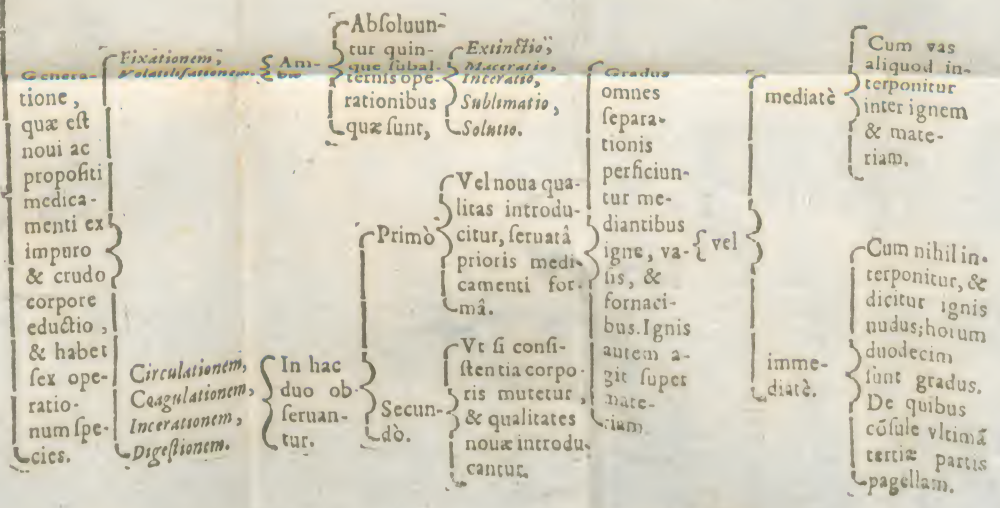 Genera-
tione,
quæ eſt
noui ac
propoſiti
medica-
menti ex
impuro
& crudo
corpore
eductio,
& habet
ſex ope-
ratio-
num ſpe-
cies.
Fixationem,
Volatiliſationem.
Am-
bæ
Abſoluun-
tur quin-
que ſubal-
ternis ope-
rationibus
quæ ſunt,
Extinctio,
Maceratio,
Inceratio,
Sublimatio,
Solutio.
Circulationem,
Coagulationem,
Incerationem,
Digeſtionem.
In hac
duo ob-
ſeruan-
tur.
Primò
Vel noua qua-
litas introdu-
citur, ſeruatâ
prioris medi-
camenti for-
mâ.
Secun-
dò.
Vt ſi conſi-
ſtentia corpo-
ris mutetur,
& qualitates
nouæ introdu-
cantur.
Gradus
omnes
ſepara-
tionis
perficiun-
tur me-
diantibus
igne, va-
ſis, &
fornaci-
bus. Ignis
autem a-
git ſuper
mate-
riam.
vel
mediatè
Cum vas
aliquod in-
terponitur
inter ignem
& mate-
riam.
imme-
diatè.
Cum nihil in-
terponitur, &
dicitur ignis
nudus; horum
duodecim
ſunt gradus.
De quibus
cõſule vltimã
tertiæ partis
pagellam.